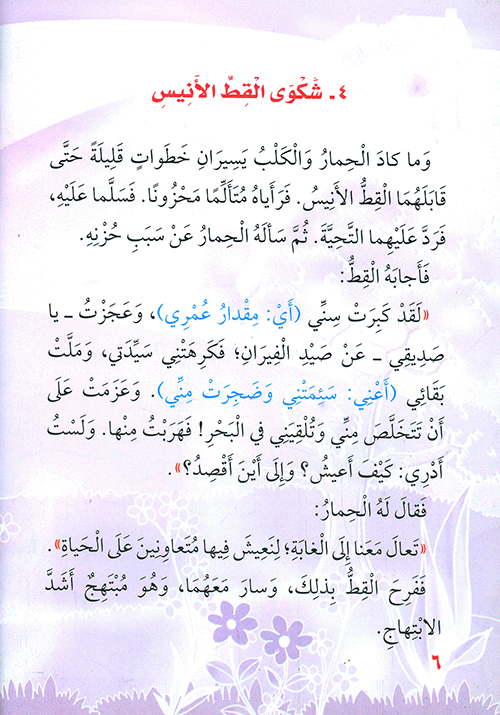 ٤ـ شَكْوَى الْقِطِّ الأَنِيسِ
وَما كادَ الْحِمارُ وَالْكَلْبُ يَسِيرَانِ خَطَواتٍ قَلِيلَةً حَتَّى
قَابَلَهُمَا الْقِطُّ الأَنِيسُ. فَرَأَياهُ مُتَأَلِّمًا مَحْزُونًا. فَسَلَّما عَلَيْهِ،
فَرَدَّ عَلَيْهِما التَّحِيَّةَ. ثُمَّ سَأَلَهُ الْحِمارُ عَنْ سَبَبِ حُزْنِهِ.
فَأَجابَهُ الْقِطُّ:
«لَقَدْ كَبِرَتْ سِنِّي (أَيْ: مِقْدارُ عُمْرِي)، وَعَجَزْتُ ـ يا
صَدِيقِي ـ عَنْ صَيْدِ الْفِيرَانِ؛ فَكَرِهَتْنِي سَيِّدَتي، وَمَلَّتْ
بَقَائِي (أَعْنِي: سَئِمَتْنِي وَضَجِرَتْ مِنِّي). وَعَزَمَتْ عَلَى
أَنْ تَتَخَلَّصَ مِنِّي وَتُلْقِيَنِي فِي الْبَحْرِ! فَهَرَبْتُ مِنْها. وَلَسْتُ
أَدْرِي: كَيْفَ أَعيشُ؟ وَإِلَى أَيْنَ أَقْصِدُ؟».
فَقالَ لَهُ الْحِمارُ:
«تَعالَ مَعَنا إِلَى الْغابَةِ؛ لِنَعِيشَ فِيها مُتَعاوِنِينَ عَلَى الْحَياةِ».
فَفَرِحَ الْقِطُّ بِذلِكَ، وَسارَ مَعَهُمَا، وَهُوَ مُبْتَهِجٌ أَشَدَّ
الابْتِهاجِ.
٦